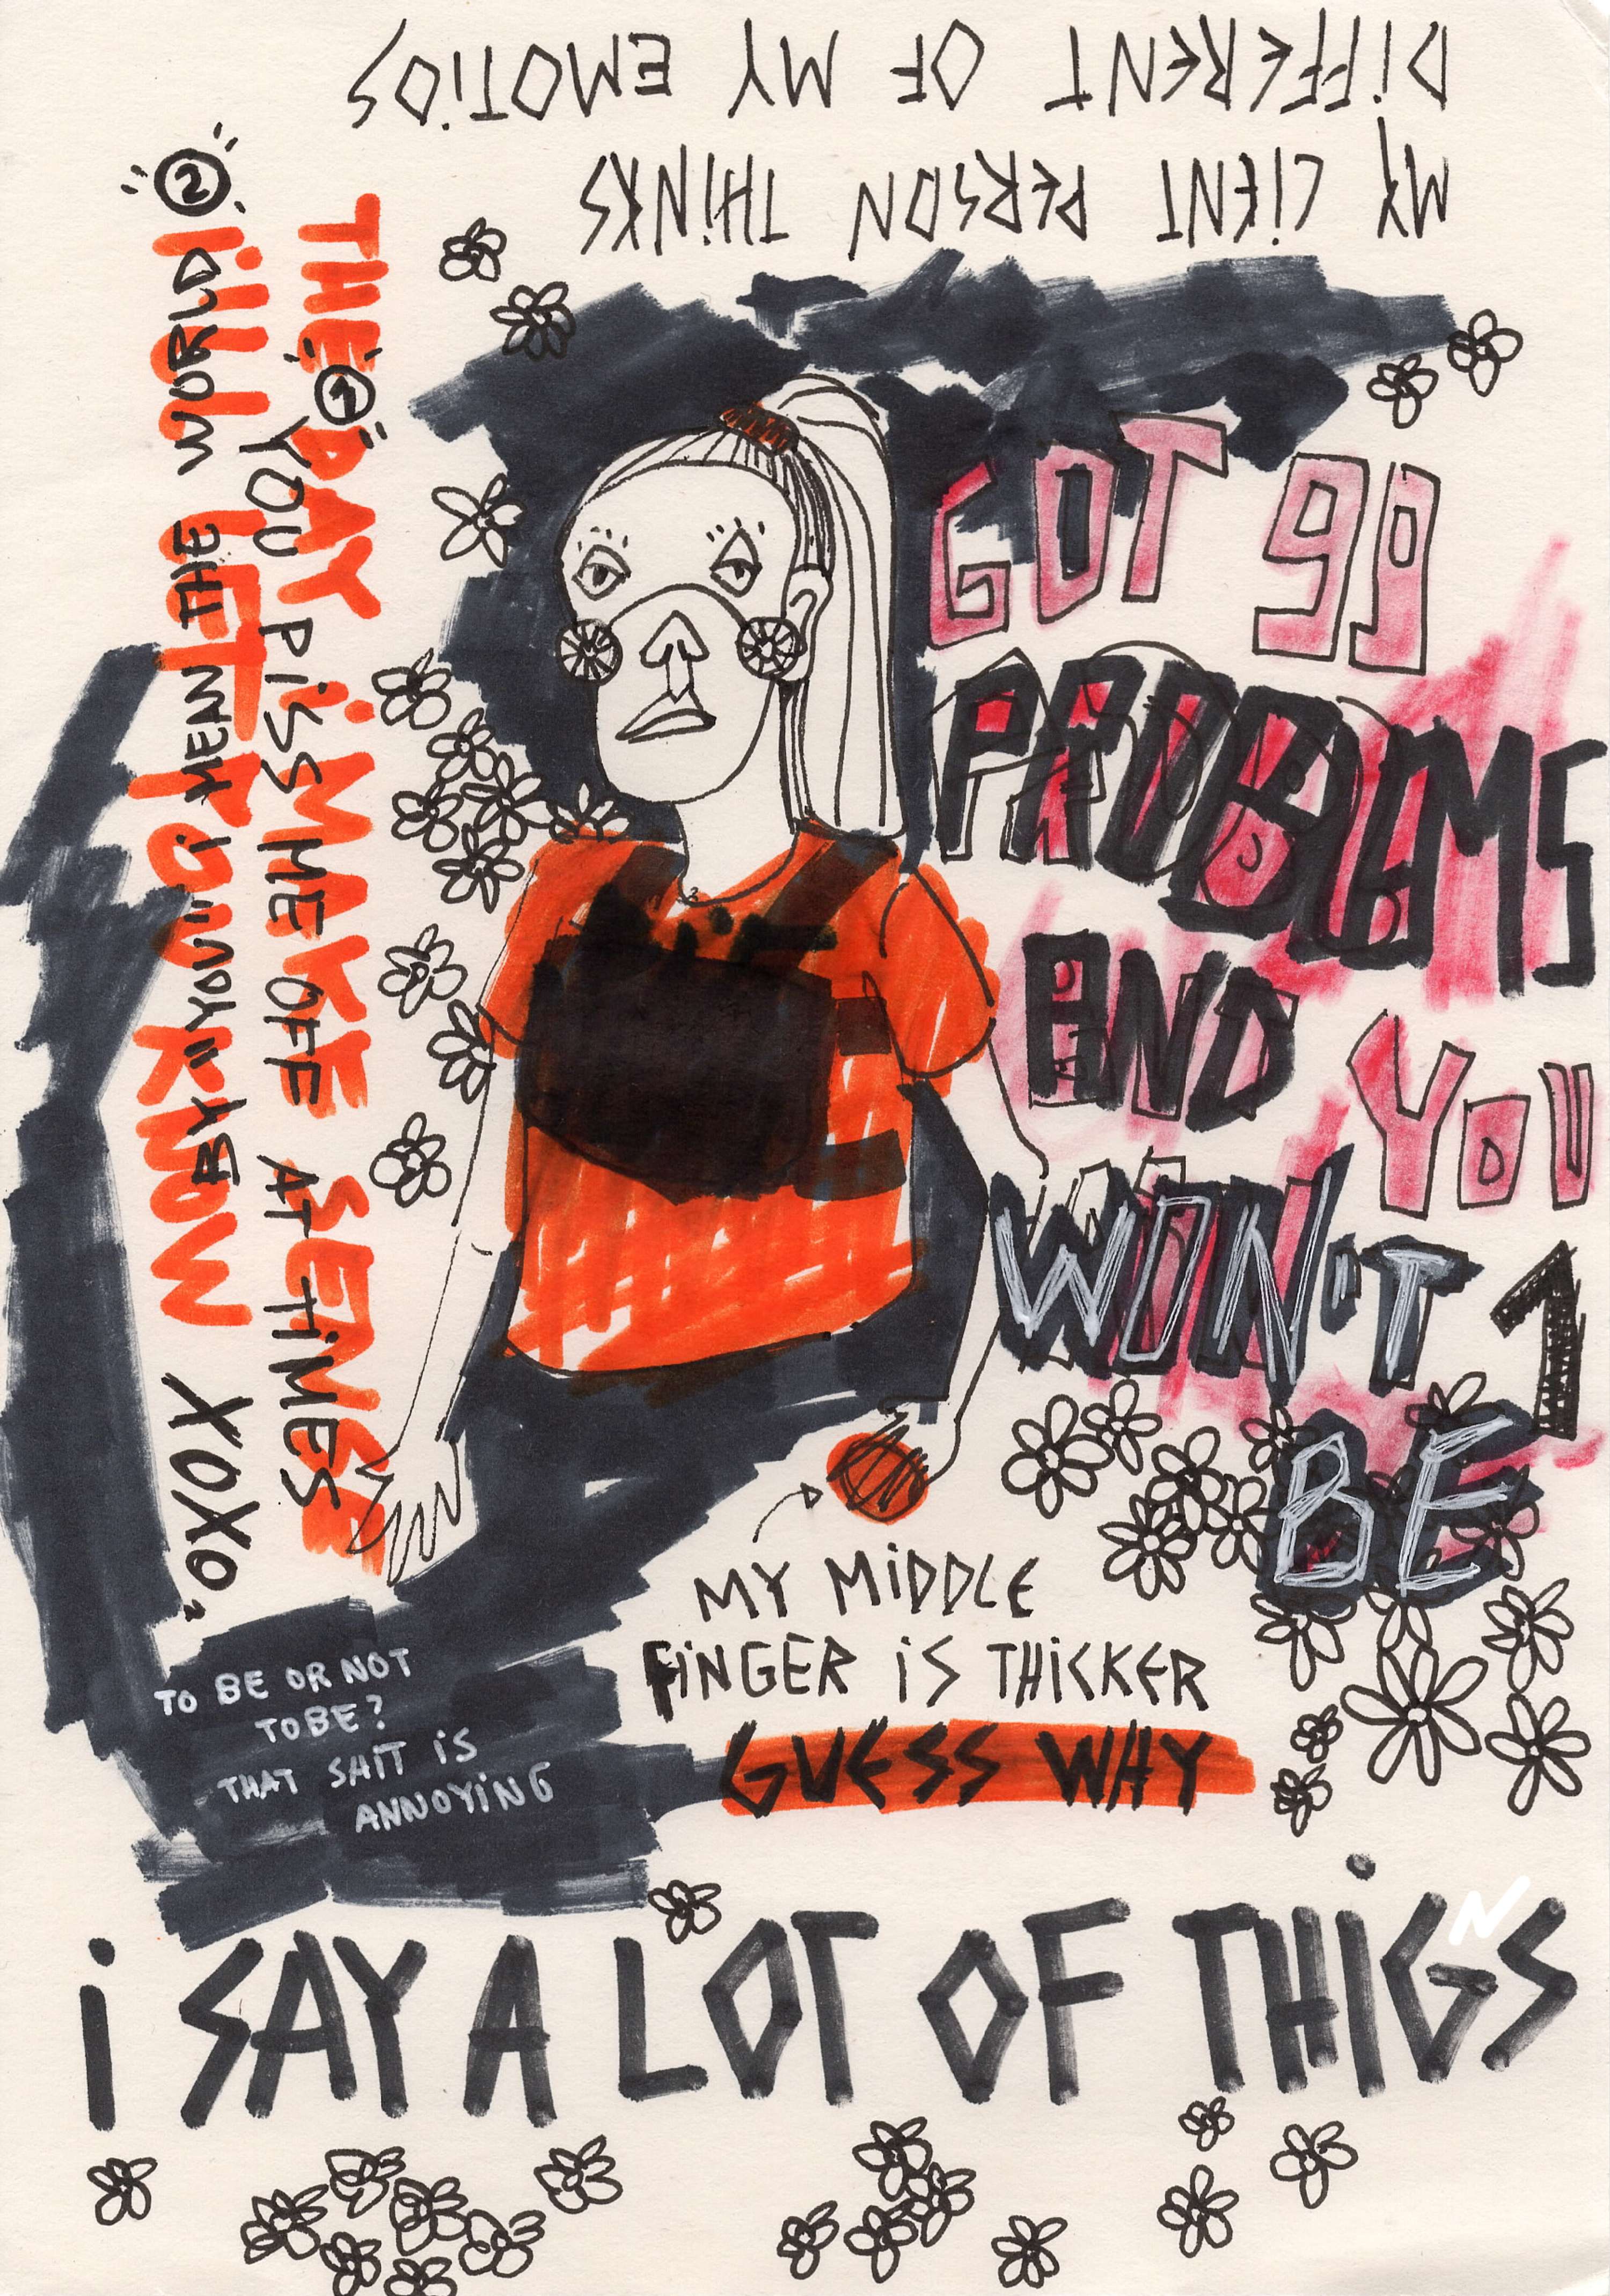 MY CIENT PERSON THINKS
DIFFERENT OF MY EMOTIOS
THE DAY i MAKE SENSE
i'LL LET U KNOW
1 YOU PISS ME OFF AT TiMES
2 BY "YOU" i MEAN THE WORLD
"XOXO"
GOT 99
PROBLEMS
AND YOU
WON'T 1
BE
MY MiDDLE
FiNGER iS THiCKER
GUESS WHY
TO BE OR NOT
TO BE?
THAT SHiT iS
ANNOYiNG
i SAY A LOT OF THiGNS